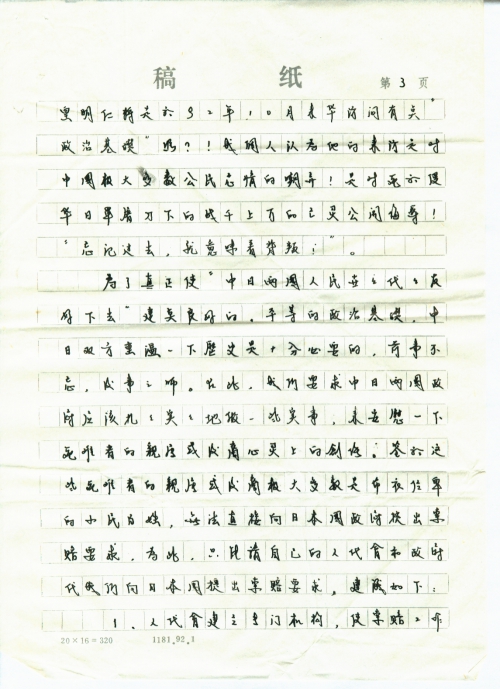 稿 纸
第 3 页
黑明仁将是於92年10月来华访问有点"
政治基础"吗?!我个人认为他的来访是对
中国极大多数公民感情的嘲弄!是对死於侵
华日军屠刀下的成千上万的亡灵公开侮辱!
"忘记过去,就意味着背叛!"。
为了真正使"中日两国人民世世代代友
好下去"建立良好的,平等的政治基础,中
日双方重温一下历史是十分必要的,前事不
忘,后事之师。在此,我们要求中日两国政
府应该扎扎实实地做一些实事,来安慰一下
死难者的亲属或后裔心灵上的创伤;鉴於这
些死难者的亲属或后裔极大多数是布衣位卑
的小民百姓,无法直接向日本国政府提出索
赔要求,为此,只能请自己的人代会和政府
代我们向日本国提出索赔要求。建议如下:
1、人代会建立专门机构,使索赔工作
20×16=320 1181.92.1